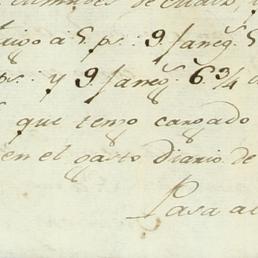 de
trigo à 5 p.s: 9 faneg.s 5
p.s: y 9 faneg.s 6 3/4 d
que tengo cargado
en el gasto diario de
Pasa al